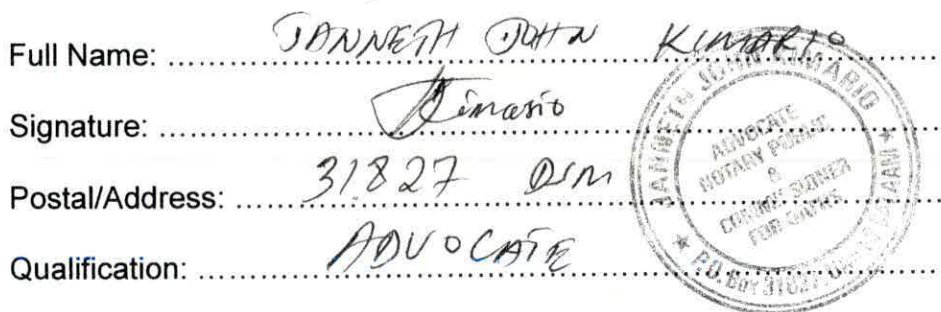 Full Name: JANNETH JOHN KIMARIO
Signature: Kimario
Postal/Address: 31827 DSM
Qualification: ADVOCATE
JANNETH JOHN KIMARIO
ADVOCATE
NOTARY PUBLIC
&
COMMISSIONER
FOR OATHS
P.O. Box 31827